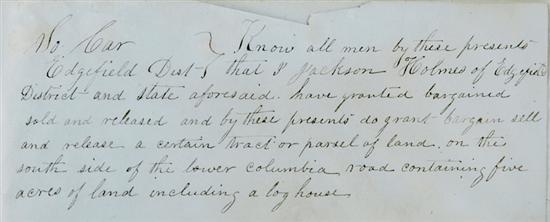 So Car } Know all men by these presents
Edgefield Dist } that I Jackson Holmes of Edgefield
District and state aforesaid have granted bargained
sold and released and by these presents do grant bargain sell
and release a certain tract or parsel of land. on the
south side of the lower columbia road containing five
acres of land including a log house